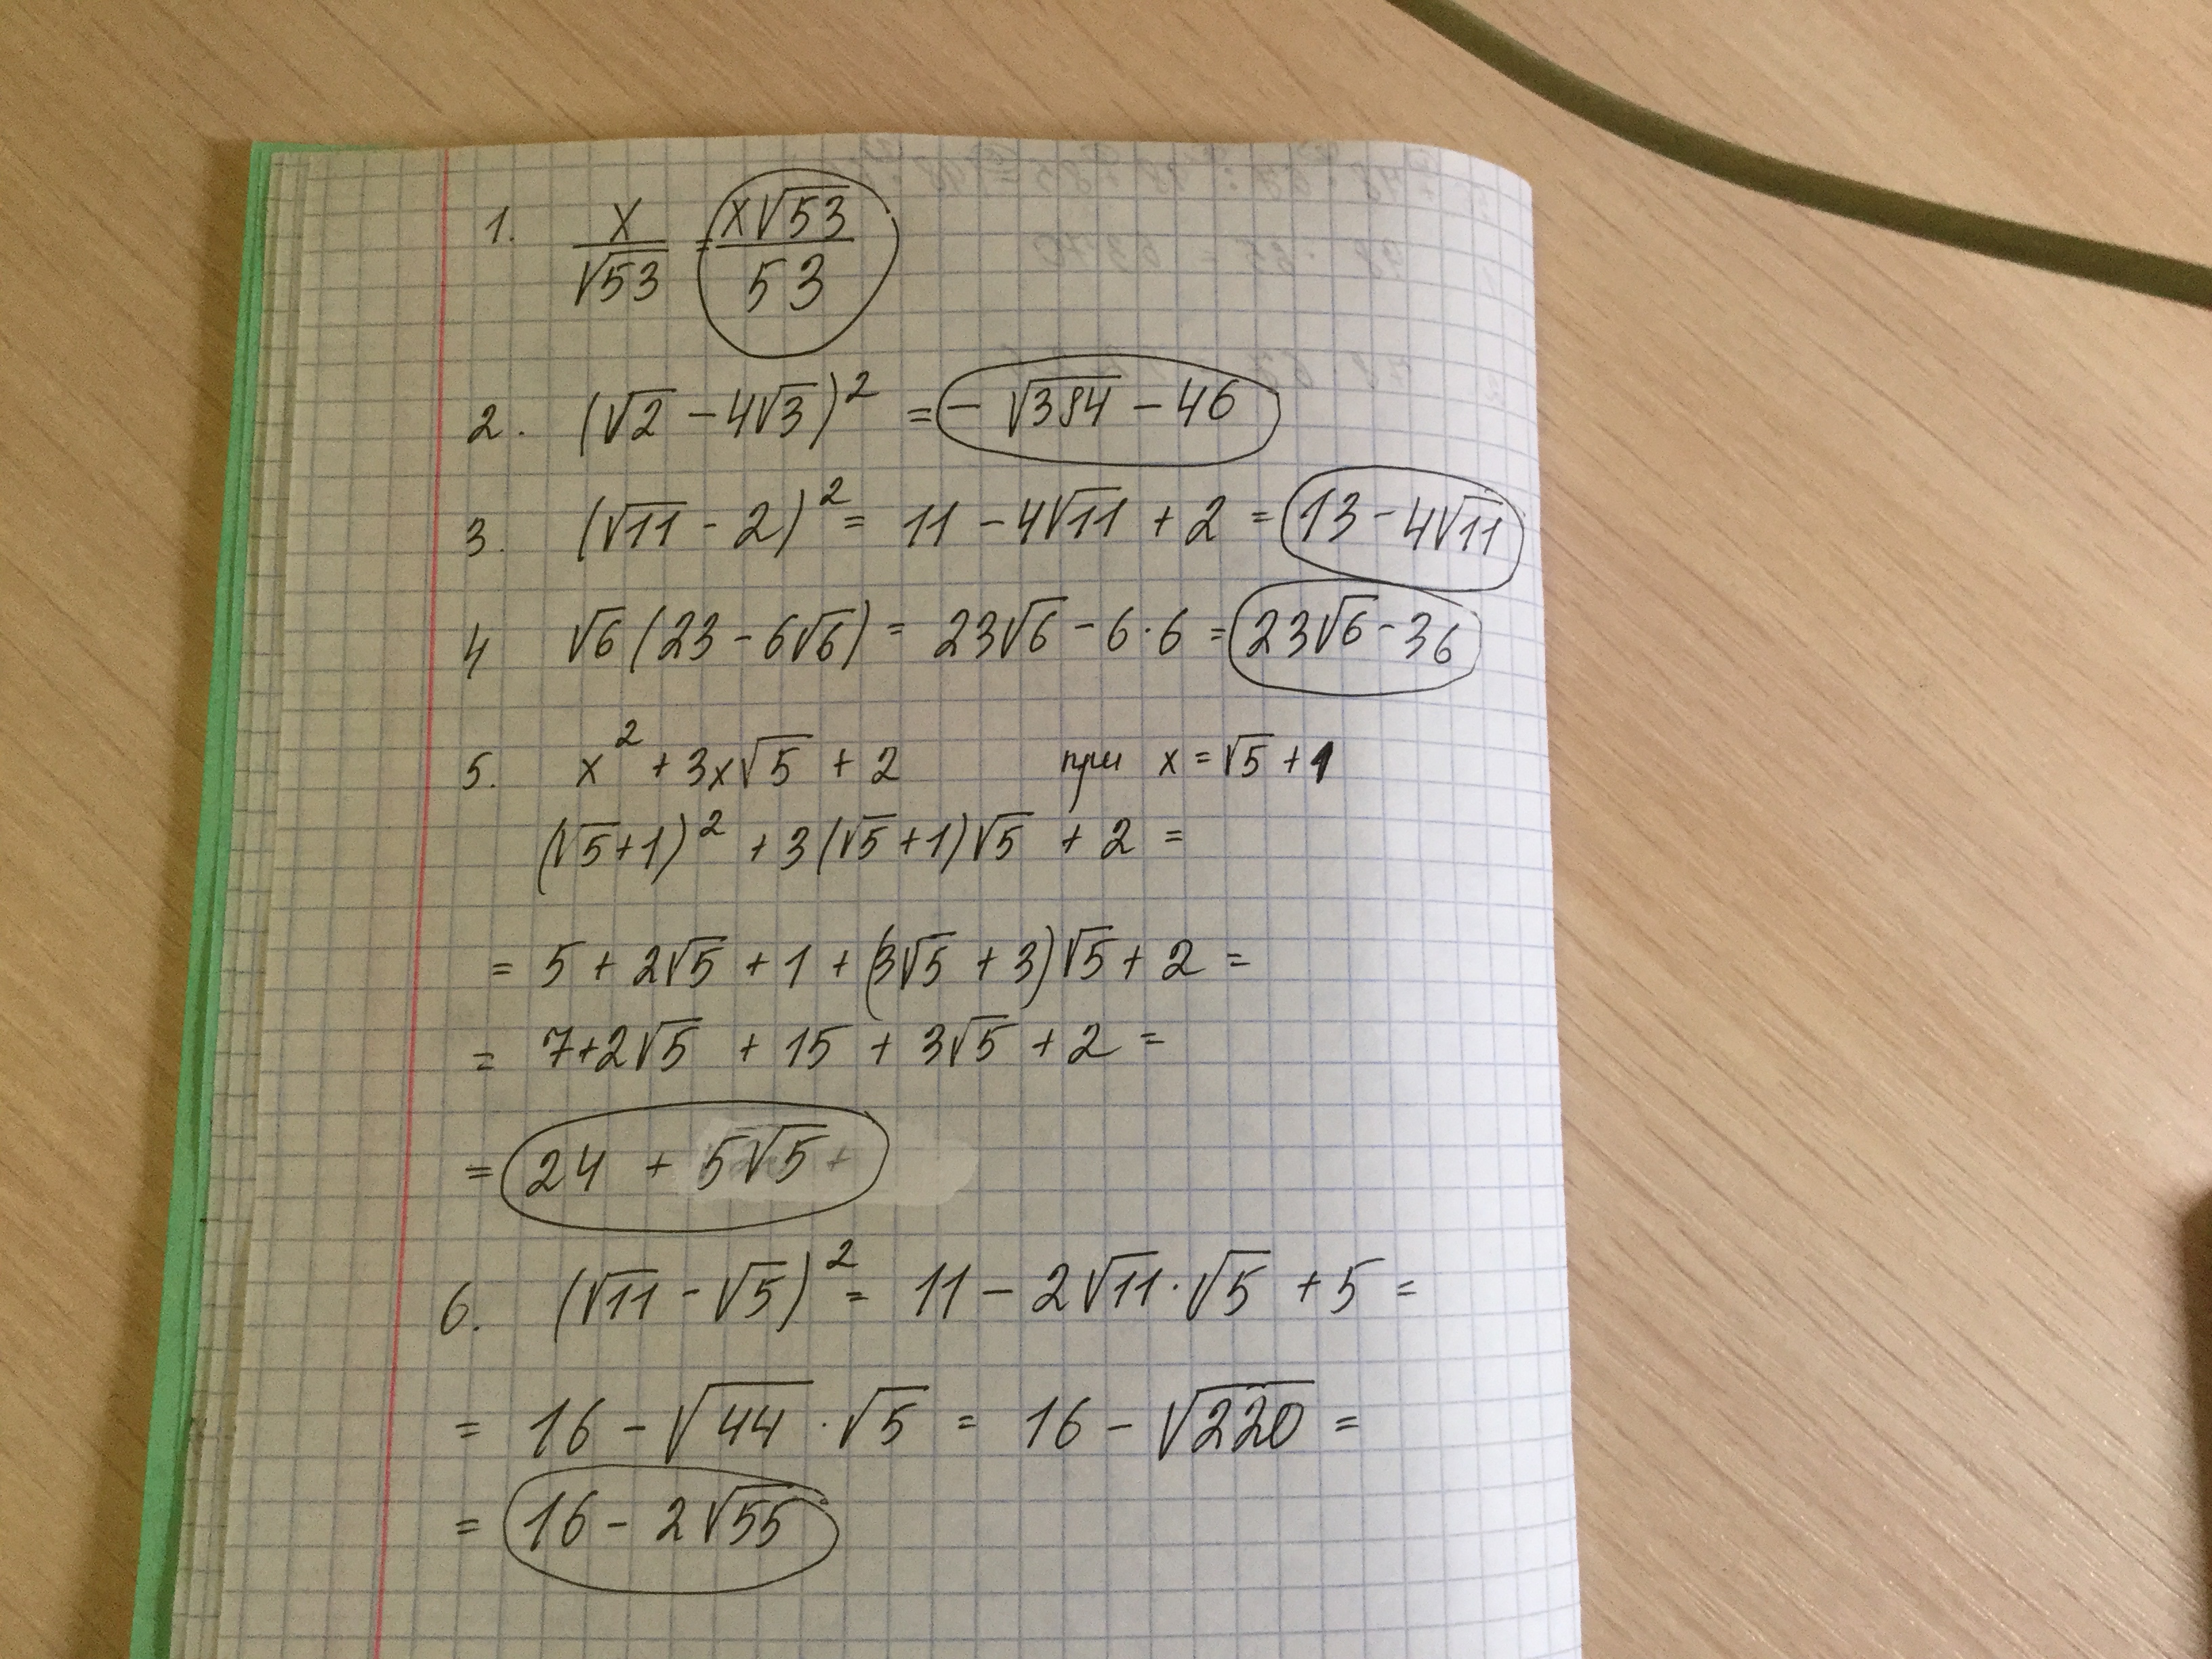 1. x/√53 = x√53/53
2. (√2 - 4√3)² = - √384 - 46
3. (√11 - 2)² = 11 - 4√11 + 2 = 13 - 4√11
4 √6(23 - 6√6) = 23√6 - 6·6 = 23√6 - 36
5. x² + 3x√5 + 2 при x = √5 + 1
(√5+1)² + 3(√5+1)√5 + 2 =
= 5 + 2√5 + 1 + (3√5 + 3)√5 + 2 =
= 7+2√5 + 15 + 3√5 + 2 =
= 24 + 5√5 +
6. (√11 - √5)² = 11 - 2√11·√5 + 5 =
= 16 - √44 · √5 = 16 - √220 =
= 16 - 2√55